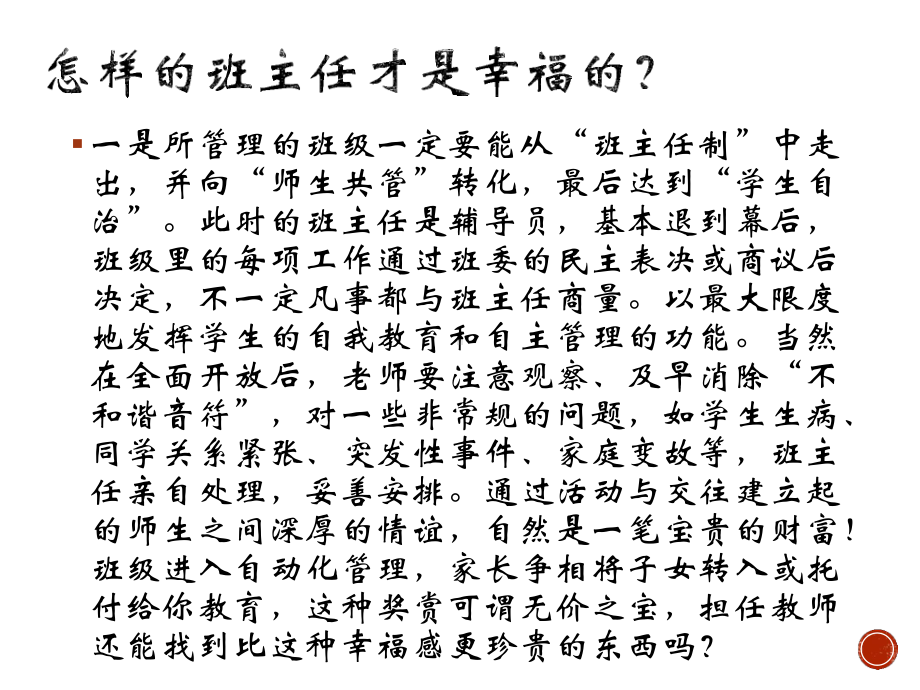 怎样的班主任才是幸福的？
一是所管理的班级一定要能从“班主任制”中走
出，并向“师生共管”转化，最后达到“学生自
治”。此时的班主任是辅导员，基本退到幕后，
班级里的每项工作通过班委的民主表决或商议后
决定，不一定凡事都与班主任商量。以最大限度
地发挥学生的自我教育和自主管理的功能。当然
在全面开放后，老师要注意观察、及早消除“不
和谐音符”，对一些非常规的问题，如学生生病、
同学关系紧张、突发性事件、家庭变故等，班主
任亲自处理，妥善安排。通过活动与交往建立起
的师生之间深厚的情谊，自然是一笔宝贵的财富！
班级进入自动化管理，家长争相将子女转入或托
付给你教育，这种奖赏可谓无价之宝，担任教师
还能找到比这种幸福感更珍贵的东西吗？